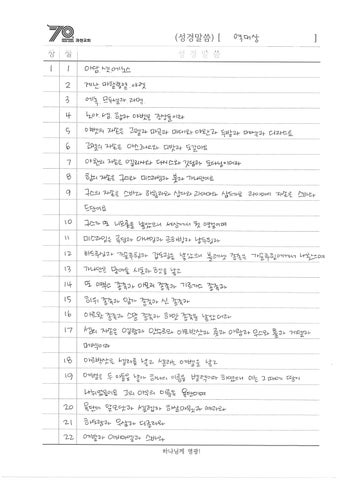 70 과천교회
(성경말씀) [ 역대상 ]
장 절 성경말씀
1 1 아담 셋 에노스
2 게난 마할랄렐 야렛
3 에녹 므두셀라 라멕
4 노아 셈 함과 야벳은 조상들이라
5 야벳의 자손은 고멜과 마곡과 마대와 야완과 두발과 메섹과 디라스요
6 고멜의 자손은 아스그나스와 디밧과 도갈마요
7 야완의 자손은 엘리사와 다시스와 깃딤과 도다님이더라
8 함의 자손은 구스와 미스라임과 붓과 가나안이요
9 구스의 자손은 스바와 하윌라와 삽다와 라아마와 삽드가요 라아마의 자손은 스바와
드단이요
10 구스가 또 니므롯을 낳았으니 세상에서 첫 영걸이며
11 미스라임은 루딤과 아나밈과 르하빔과 납두힘과
12 바드루심과 가슬루힘과 갑도림을 낳았으니 블레셋 종족은 가슬루힘에게서 나왔으며
13 가나안은 맏아들 시돈과 헷을 낳고
14 또 여부스 종족과 아모리 종족과 기르가스 종족과
15 히위 종족과 알가 종족과 신 종족과
16 아르왓 종족과 스말 종족과 하맛 종족을 낳았더라
17 셈의 자손은 엘람과 앗수르와 아르박삿과 룻과 아람과 우스와 훌과 게델과
메섹이라
18 아르박삿은 셀라를 낳고 셀라는 에벨을 낳고
19 에벨은 두 아들을 낳아 하나의 이름을 벨렉이라 하였으니 이는 그 때에 땅이
나뉘었음이요 그의 아우의 이름은 욕단이며
20 욕단이 알모닷과 셀렙과 하살마웻과 예라와
21 하도람과 우살과 디글라와
22 에발과 아비마엘과 스바와
하나님께 영광!